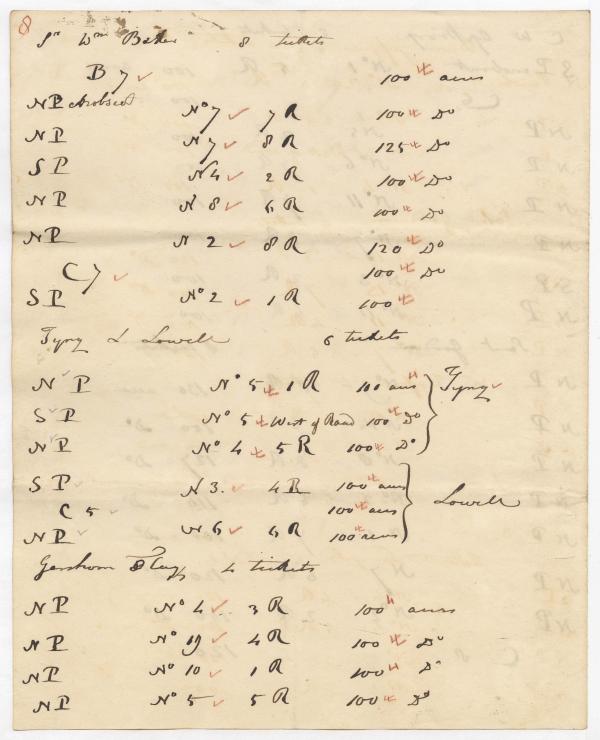 8
Sr Wm Baker 8 tickets
B 7 100 acres
NP No 7 7 R 100 Do
NP N 7 8 R 125 Do
SP N 4 2 R 100 Do
NP N 8 6 R 100 Do
NP N 2 8 R 120 Do
C 7 100 Do
SP No 2 1 R 100
Tyng & Lowell 6 tickets
NP No 5 1 R 100 acres Tyng
SP No 5 West of Road 100 Do
NP No 4 5 R 100 Do
SP N 3. 4 R 100 acres
C 5 100 acres Lowell
NP N 6 6 R 100 acres
Gershom Flagg 4 tickets
NP No 4 3 R 100 acres
NP No 19 4 R 100 Do
NP No 10 1 R 100 Do
NP No 5 5 R 100 Do